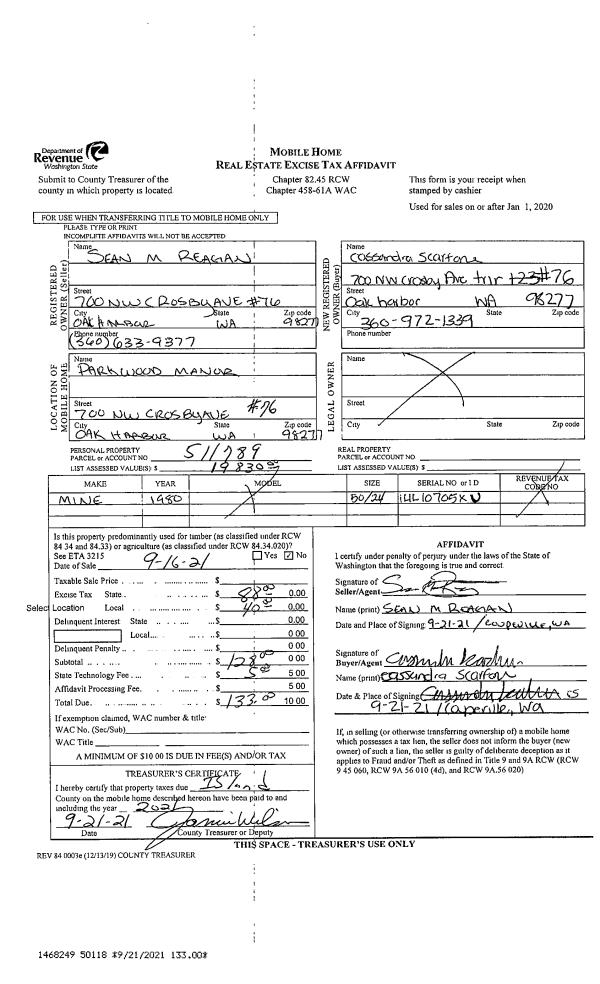 Department of
Revenue
Washington State
Submit to County Treasurer of the
county in which property is located
MOBILE HOME
REAL ESTATE EXCISE TAX AFFIDAVIT
Chapter 82.45 RCW
Chapter 458-61A WAC
This form is your receipt when
stamped by cashier
Used for sales on or after Jan 1, 2020
FOR USE WHEN TRANSFERRING TITLE TO MOBILE HOME ONLY
PLEASE TYPE OR PRINT
INCOMPLETE AFFIDAVITS WILL NOT BE ACCEPTED
REGISTERED OWNER (Seller)
Name
SEAN M REAGAN
Street
700 NW CROSBY AVE #76
City State Zip code
OAK HARBOR WA 98277
Phone number
(360) 633-9377
NEW REGISTERED OWNER (Buyer)
Name
Cassandra Scarfone
700 NW Crosby Ave trlr #76
Street
Oak harbor WA 98277
City State Zip code
360-972-1339
Phone number
LOCATION OF MOBILE HOME
Name
PARKWOOD MANOR
Street
700 NW CROSBY AVE #76
City State Zip code
OAK HARBOR WA 98277
LEGAL OWNER
Name
Street
City State Zip code
PERSONAL PROPERTY
PARCEL or ACCOUNT NO 511789
LIST ASSESSED VALUE(S) $ 19830
REAL PROPERTY
PARCEL or ACCOUNT NO
LIST ASSESSED VALUE(S) $
MAKE YEAR MODEL SIZE SERIAL NO or I D REVENUE TAX CODE NO
MINE 1980 50/24 ILL10705XU
Is this property predominantly used for timber (as classified under RCW
84 34 and 84.33) or agriculture (as classified under RCW 84.34.020)?
See ETA 3215 Yes ☑ No
Date of Sale 9-16-21
Taxable Sale Price $
Excise Tax State $ 88.00 0.00
Select Location Local $ 40.00 0.00
Delinquent Interest State $ 0.00
Local $ 0 00
Delinquent Penalty $ 0 00
Subtotal $ 128.00 0 00
State Technology Fee $ 5.00 5 00
Affidavit Processing Fee $ 5 00
Total Due $ 133.00 10 00
If exemption claimed, WAC number & title
WAC No. (Sec/Sub)
WAC Title
A MINIMUM OF $10 00 IS DUE IN FEE(S) AND/OR TAX
TREASURER'S CERTIFICATE
I hereby certify that property taxes due Island
County on the mobile home described hereon have been paid to and
including the year 2021
9-21-21
Date County Treasurer or Deputy
AFFIDAVIT
I certify under penalty of perjury under the laws of the State of
Washington that the foregoing is true and correct.
Signature of
Seller/Agent
Name (print) SEAN M REAGAN
Date and Place of Signing 9-21-21 / COUPEVILLE, WA
Signature of
Buyer/Agent
Name (print) Cassandra Scarfone
Date & Place of Signing CS
9-21-21 / Coupeville, WA
If, in selling (or otherwise transferring ownership of) a mobile home
which possesses a tax lien, the seller does not inform the buyer (new
owner) of such a lien, the seller is guilty of deliberate deception as it
applies to Fraud and/or Theft as defined in Title 9 and 9A RCW (RCW
9 45 060, RCW 9A 56 010 (4d), and RCW 9A.56 020)
THIS SPACE - TREASURER'S USE ONLY
REV 84 0003e (12/13/19) COUNTY TREASURER
1468249 50118 *9/21/2021 133.00*